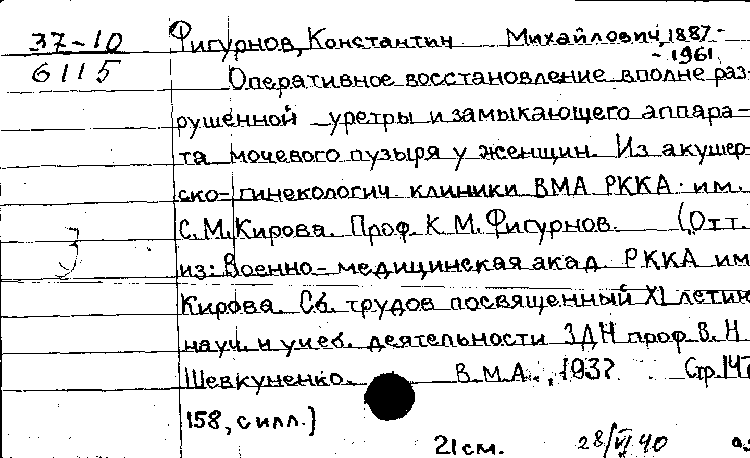 37-10 Фигурнов, Константин Михайлович, 1887-
-1961.
6115 Оперативное восстановление вполне раз-
рушенной уретры и замыкающего аппара-
та мочевого пузыря у женщин. Из акушер-
ско-гинекологич. клиники ВМА РККА им.
С.М.Кирова. Проф. К.М.Фигурнов. (Отт.
из: Военно-медицинская акад. РККА им
Кирова. Сб. трудов посвященный XL летию
науч. и учеб. деятельности ЗДН проф. В.Н.
Шевкуненко. В.М.А., 1937. Стр. 147
158, с илл.)
21см. 28/VI 40